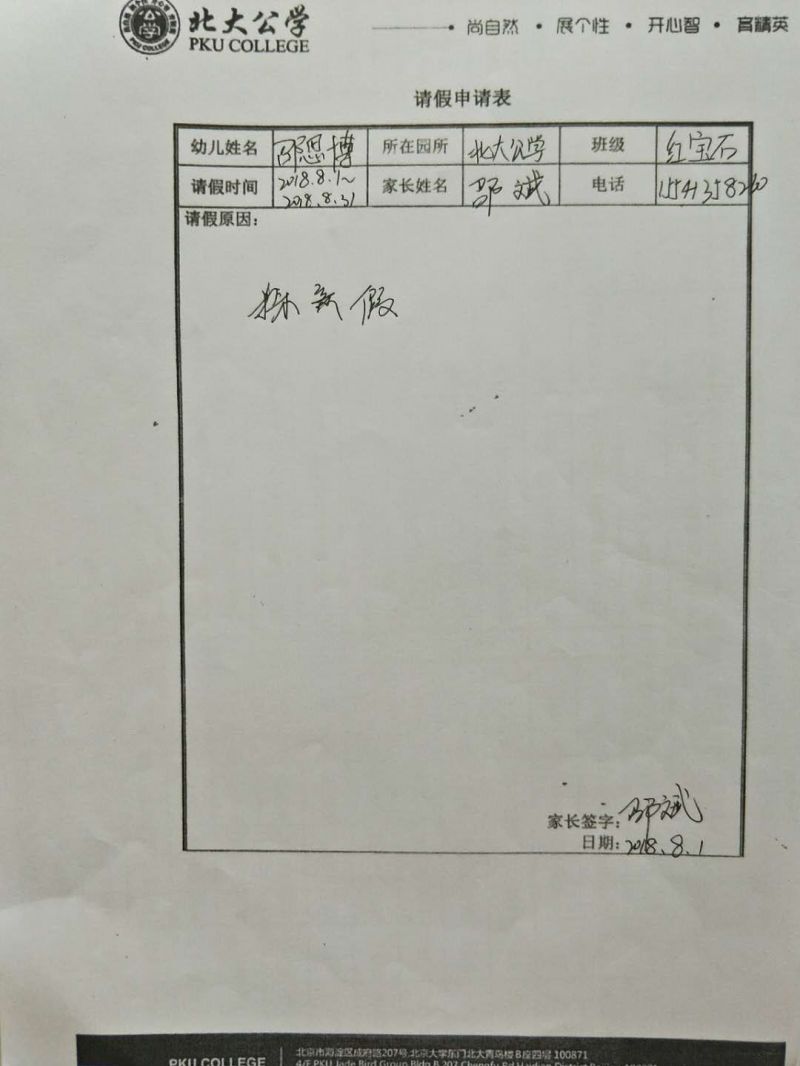 北大公学
PKU COLLEGE
尚自然 • 展个性 • 开心智 • 育精英
请假申请表
幼儿姓名 邵思博 所在园所 北大公学 班级 红宝石
请假时间 2018.8.1~ 2018.8.31 家长姓名 邵斌 电话
请假原因：
探亲假
家长签字：邵斌
日期：2018.8.1
PKU COLLEGE
北京市海淀区成府路207号,北京大学东门北大青鸟楼B座四层 100871
4/F PKU Jade Bird Group Bldg B 207 Chengfu Rd Haidian District